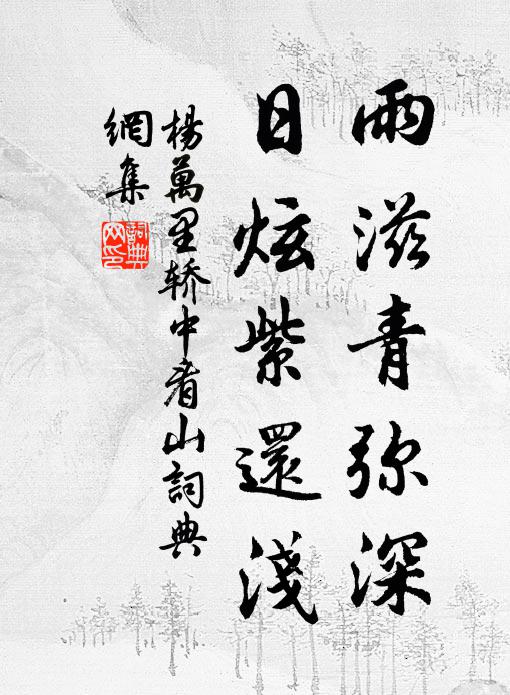 雨滋青弥深
日炫紫還淺
楊萬里轿中看山詞典
網集
詞典
网印